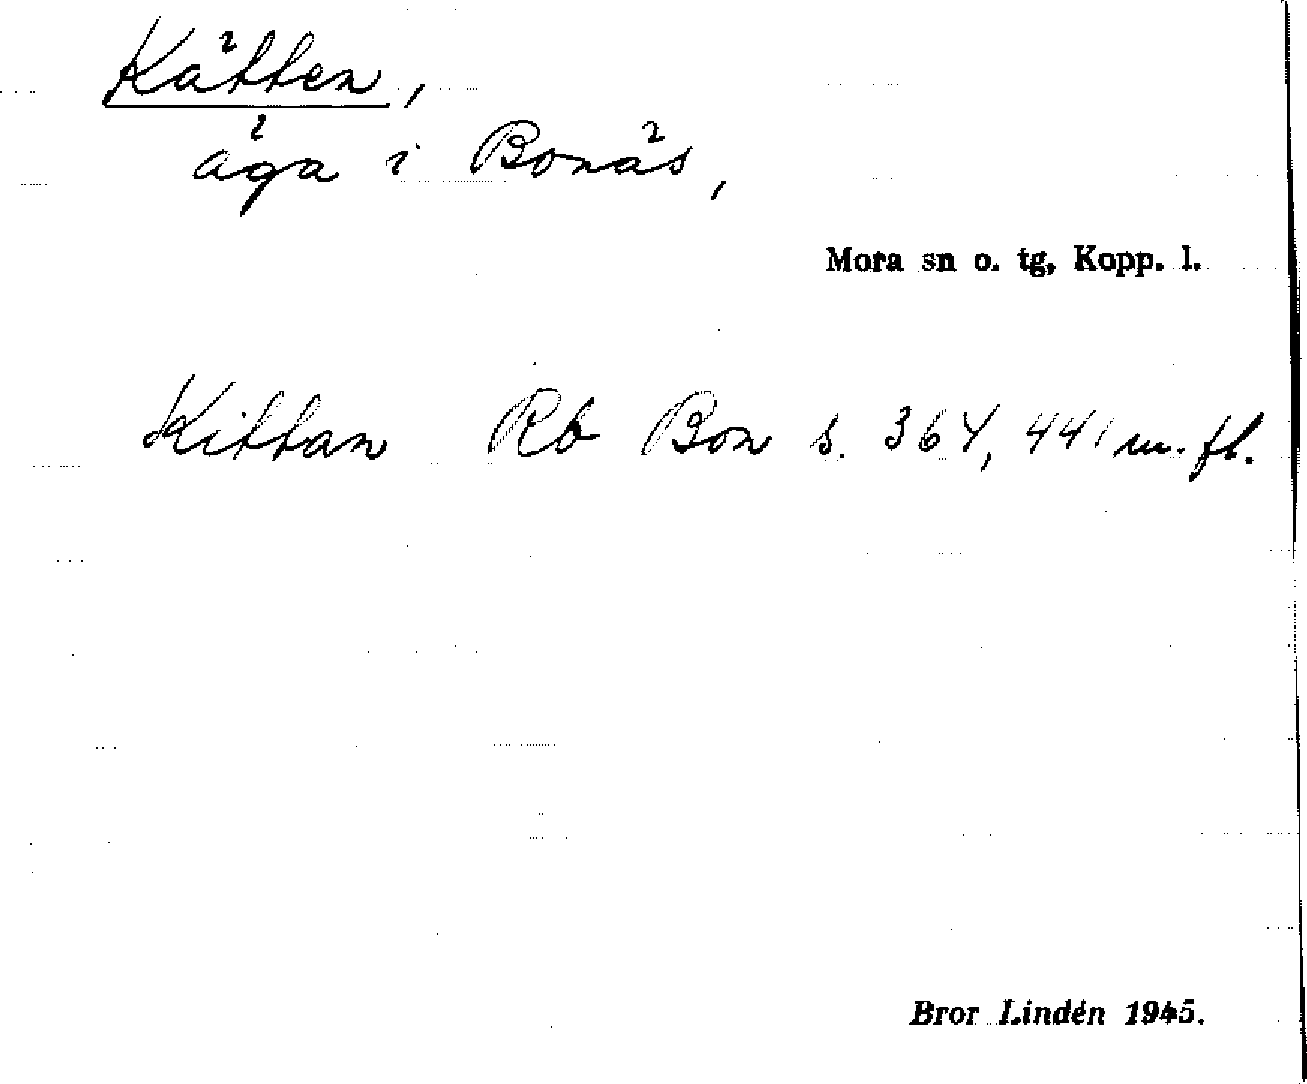 Kätten,
äga i Bonäs,
Mora sn o. tg, Kopp. l.
Kittan Rb Bon s. 364, 441 m. fl.
Bror Lindén 1945.